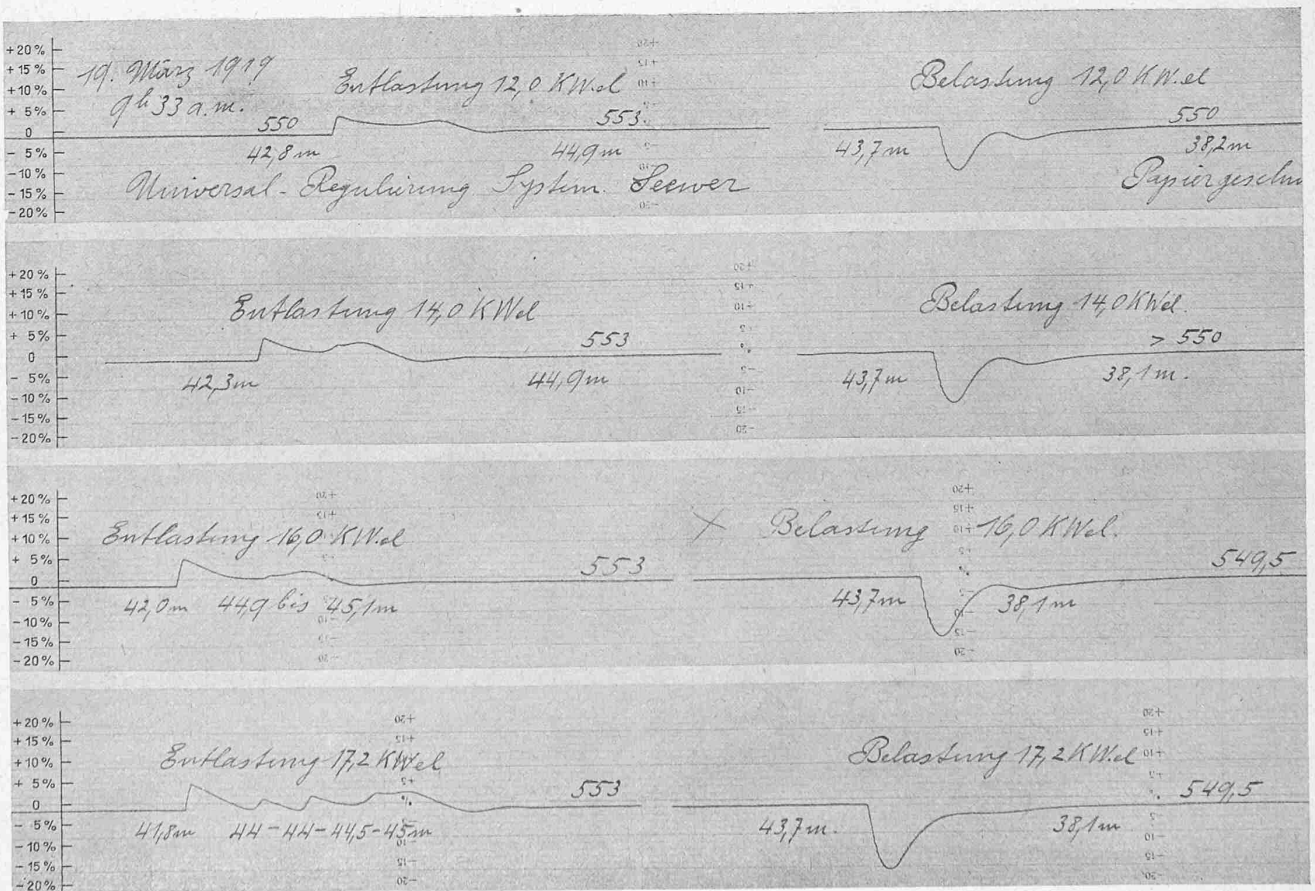 +20%
+15%
+10%
+ 5%
0
- 5%
-10%
-15%
-20%
19. März 1919
9h 33 a.m.
Entlastung 12,0 KW.el
550
553
42,8m
44,9m
Universal-Regulierung System. Seewer
Belastung 12,0 KW.el
550
43,7m
38,2m
+20%
+15%
+10%
+ 5%
0
- 5%
-10%
-15%
-20%
Entlastung 14,0 KWel
553
42,3m
44,9m
Belastung 14,0 KWel.
> 550
43,7m
38,1m.
+20%
+15%
+10%
+ 5%
0
- 5%
-10%
-15%
-20%
Entlastung 16,0 KW.el
553
42,0m 44,9 bis 45,1m
X Belastung 16,0 KWel.
549,5
43,7m
38,1m
+20%
+15%
+10%
+ 5%
0
- 5%
-10%
-15%
-20%
Entlastung 17,2 KWel
553
41,8m 44-44-44,5-45m
Belastung 17,2 KW.el
549,5
43,7m.
38,1m